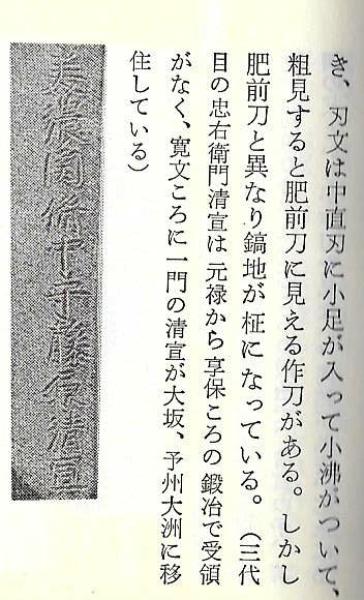 き、刃文は中直刃に小足が入って小沸がついて、
粗見すると肥前刀に見える作刀がある。しかし
肥前刀と異なり鎬地が柾になっている。（三代
目の忠右衛門清宣は元禄から享保ころの鍛冶で受領
がなく、寛文ころに一門の清宣が大坂、予州大洲に移
住している）
美濃国
藤原清宣